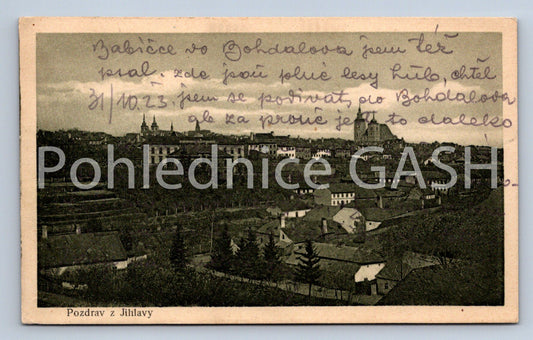 Babičce do Bohdalova jsem též
psal. zde jsou
lesy
chtěl
31/10.23 jsem se podívat, do Bohdalova
ale za je to daleko
Pohlednice GASH
Pozdrav z Jihlavy